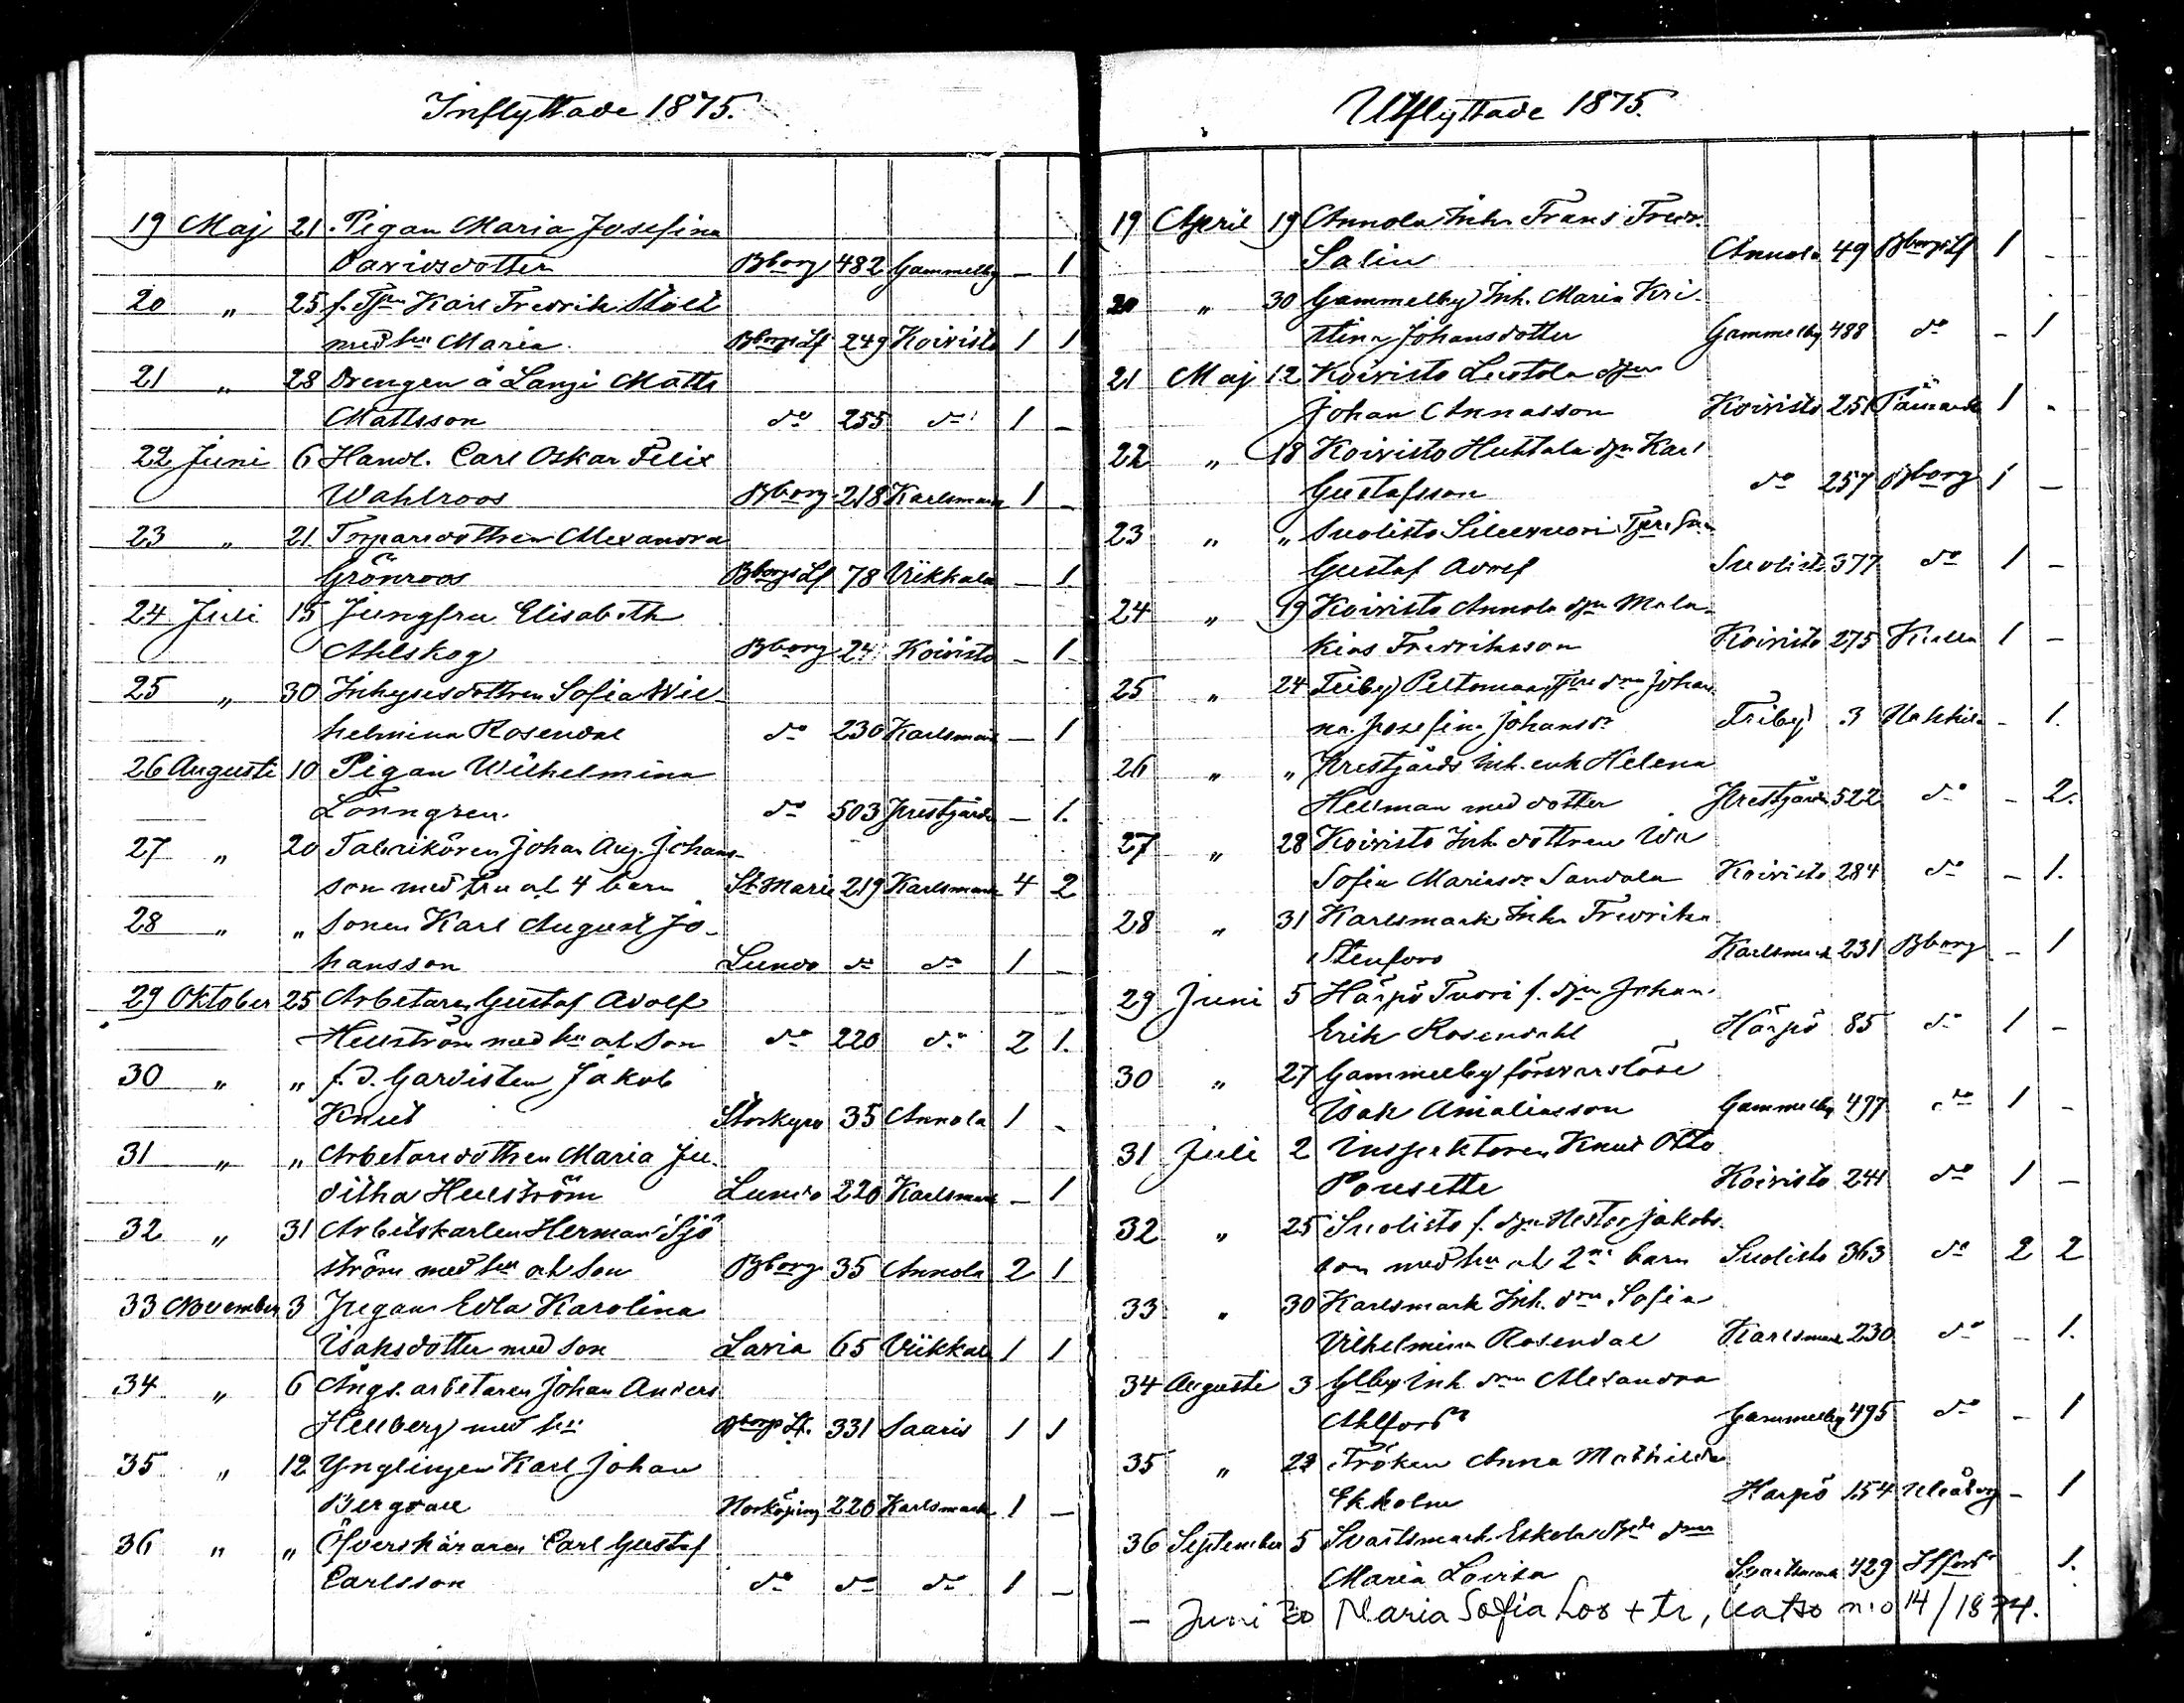 Inflyttade 1875.
19 Maj 21. Pigan Maria Josefina
Davidsdotter Bborg 482 Gammelby – 1
20 " 25 f. Karl Fredrik Stolt
med hu Maria Bborgs Lf 249 Koivisto 1 1
21 " 28 Drengen å Lanzi Matts
Mattsson do 255 do 1 –
22 Juni 6 Handl. Carl Oskar Felix
Wahlroos Bborg 218 Karlsmark 1 –
23 " 21. Torparedottren Alexandra
Grönroos Bborgs Lf 78 Viikkala – 1
24 Juli 15 Jungfru Elisabeth
Ahlskog Bborg 24 Koivisto – 1
25 " 30 Inhysesdottren Sofia Wil-
helmina Rosendal do 230 Karlsmark – 1
26 Augusti 10 Pigan Wilhelmina
Lönngren. do 503 Prestgårds – 1.
27 " 20 Fabrikören Johan Aug. Johans-
son med fru oh 4 barn St Marie 219 Karlsmark 4 2
28 " " Sonen Karl August Jo-
hansson Lundo do do 1 –
29 Oktober 25 Arbetaren Gustaf Adolf
Hellström med hu oh Son do 220 do 2 1.
30 " " f.d. Gardisten Jakob
Knut Storkyro 35 Annola 1 –
31 " " Arbetaredottren Maria Ju-
ditha Hellström Lundo 220 Karlsmark – 1
32 " 31 Arbetskarlen Herman Sjö
ström med hu oh Son Bborg 35 Annola 2 1
33 November 3 Pigan Edla Karolina
Isaksdotter med son Lavia 65 Viikkala 1 1
34 " 6 Ångs. arbetaren Johan Anders
Hellberg med hu Bborgs Lf. 331 Saaris 1 1
35 " 12 Ynglingen Karl Johan
Bergdall Norköping 220 Karlsmark 1 –
36 " " Öfverskäraren Carl Gustaf
Carlsson do do do 1 –
Utflyttade 1875.
19 April 19 Annola Inh. Frans Fredr.
Salin Annola 49 Bborgs Lf 1 –
20 " 30 Gammelby Inh. Maria Kri-
stina Johansdotter Gammelby 488 do – 1
21 Maj 12 Koivisto Luotola
Johan Annasson Koivisto 251 1 –
22 " 18 Koivisto Huttala dgn Karl
Gustafsson do 257 Bborg 1 –
23 " " Suolisto
Gustaf Adolf Suolisto 377 do 1 –
24 " 19 Koivisto Annola dgn Mala-
kias Fredriksson Koivisto 275 1 –
25 " 24 Friby Peltomaa Johan-
na Josefina Johansdr Friby 3 – 1.
26 " " Prestgårds Inh. enk Helena
Hellman med dotter Prestgårds 522 do – 2.
27 " 28 Koivisto Inh. dottren Ida
Sofia Mariasdr Sandola Koivisto 284 do – 1.
28 " 31 Karlsmark Inh. Fredrika
Stenfors Karlsmark 231 Bborg – 1
29 Juni 5 Härpö Tuori f. dgn Johan
Erik Rosendahl Härpö 85 do 1 –
30 " 27 Gammelby förswarslöse
Isak Amaliasson Gammelby 497 do 1 –
31 Juli 2 Inspektoren Knut Otto
Pousette Koivisto 241 do 1 –
32 " 25 Suolisto f. dgn Nestor Jakobs-
son med hu oh 2ne barn Suolisto 363 do 2 2
33 " 30 Karlsmark Inh. drn Sofia
Vilhelmina Rosendal Karlsmark 230 do – 1.
34 Augusti 3 Glby Inh. drn Alexandra
Ahlfors Gammelby 495 do – 1
35 " 23 Fröken Anna Mathilda
Ekholm Harpö 154 Uleåborg – 1
36 September 5 Svartsmark Eskola drn
Maria Lovisa Svartsmark 429 1.
– Juni 20 Maria Sofia Los + tr, katso n:o 14/1874.